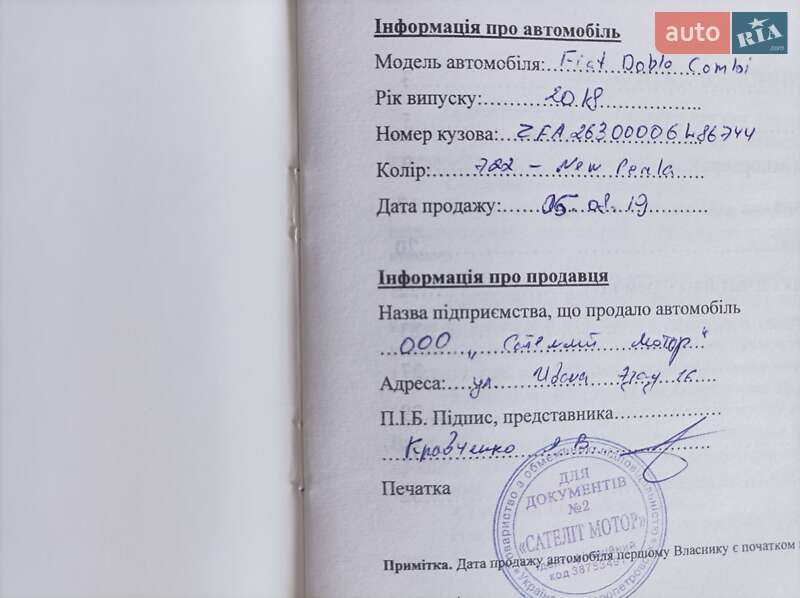 auto RIA .com
Інформація про автомобіль
Модель автомобіля: Fiat Doblo Combi
Рік випуску: 2018
Номер кузова: ZFA26300006L86744
Колір: 722 – New Perla
Дата продажу: 05.08.19
Інформація про продавця
Назва підприємства, що продало автомобіль
ООО „Сателлит Мотор"
Адреса: ул.
П.І.Б. Підпис, представника
Кравченко
Печатка
ДЛЯ
ДОКУМЕНТІВ
№2
«САТЕЛІТ МОТОР»
код
Примітка. Дата продажу автомобіля першому Власнику є початком